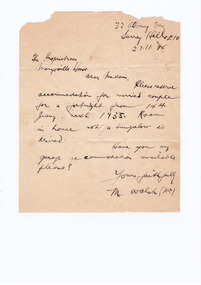 Surrey Hills E10
The Proprietress
Marysville House
Dear Madam,
Please reserve
accomodation for married couple
for a fortnight from 14th
Jany. next 1955. Room
in house not a bungalow is
desired.
Have you any
garage accomodation available
please?
Yours faithfully
M. Walsh (Mrs)